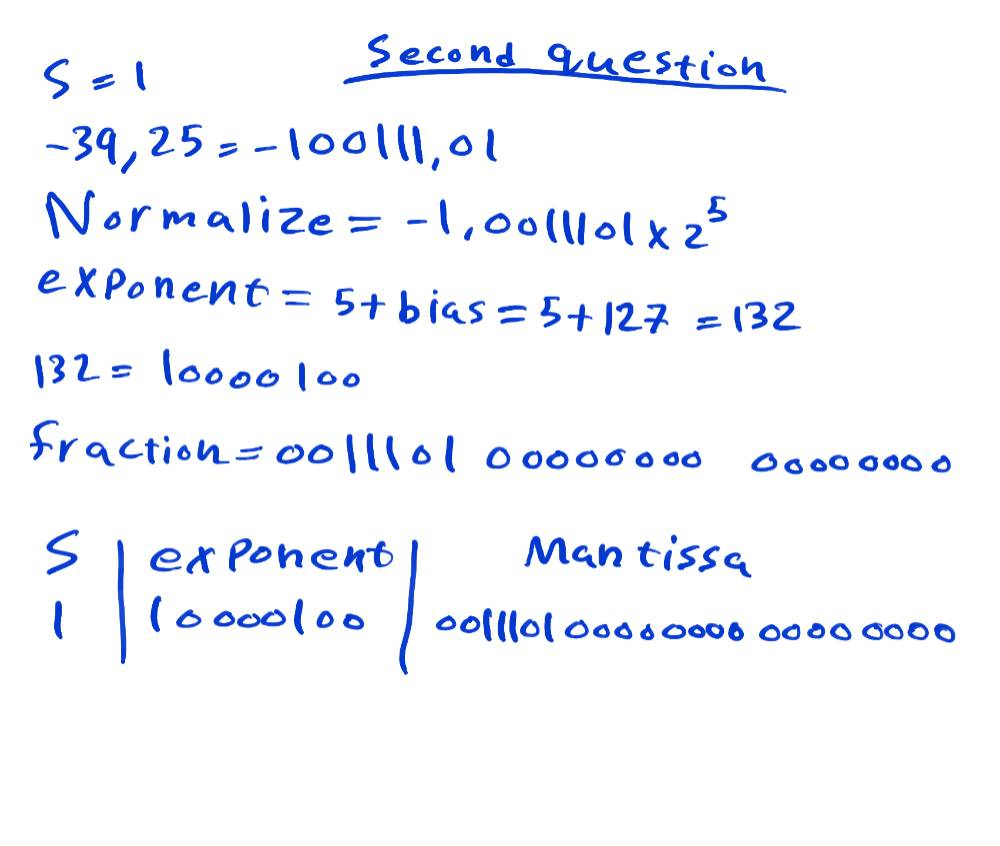 Second question
S = 1
-39,25 = -100111,01
Normalize = -1,0011101 x 2^5
exponent = 5 + bias = 5 + 127 = 132
132 = 10000100
fraction = 0011101 00000000 00000000
S | exponent | Mantissa
1 | 10000100 | 0011101 00000000 00000000